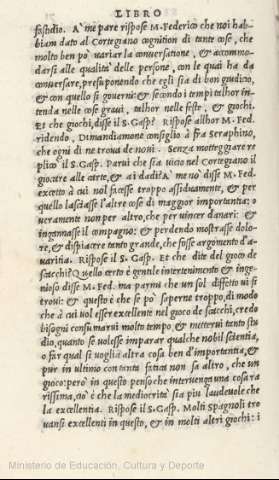 LIBRO
fastidio. A' me pare rispose M. Federico che noi hab-
biam dato al Cortegiano cognition di tante cose, che
molto ben po variar la conversatione, & accommo-
darsi alle qualità delle persone, con le quai ha da
conversare, presuponendo che egli sia di bon giudicio,
& con quello si governi: & secondo i tempi talhor in-
tenda nelle cose gravi, talhor nelle feste, & giochi.
Et che giochi, disse il S. Gasp? Rispose allhor M. Fed.
ridendo, Dimandiamone consiglio à fra Seraphino,
che ogni dì ne trova de noui. Senza motteggiare re
plicò il S. Gasp. Parui che sia uicio nel Cortegiano il
giocare alle carte, & ai dadi? A' me nò disse M. Fed.
excetto à cui nol facesse troppo assiduamente, & per
quello lasciasse l'altre cose di maggior importantia: o
ueramente non per altro, che per uincer danari: &
ingannasse il compagno: & perdendo mostrasse dolo-
re, & dispiacere tanto grande, che fosse argomento d'a-
uaritia. Rispose il S. Gasp. Et che dite del gioco de
scacchi? Quello certo è gentile intertenimento & inge-
nioso disse M. Fed. ma parmi che un sol diffetto ui si
troui: & questo è che se pò saperne troppo, di modo
che à cui uol esser excellente nel gioco de scacchi, credo
bisogni consumarui molto tempo, & metterui tanto stu
dio, quanto se uolesse imparar qualche nobil scientia,
o far qual si uoglia altra cosa ben d'importantia, &
pur in ultimo con tanta fatica non sa altro, che un
gioco: però in questo penso che interuenga una cosa ra
rissima, cio è che la mediocrità sia piu laudeuole che
la excellentia. Rispose il S. Gasp. Molti spagnoli tro
uansi excellenti in questo, & in molti altri giochi: i
Ministerio de Educación, Cultura y Deporte